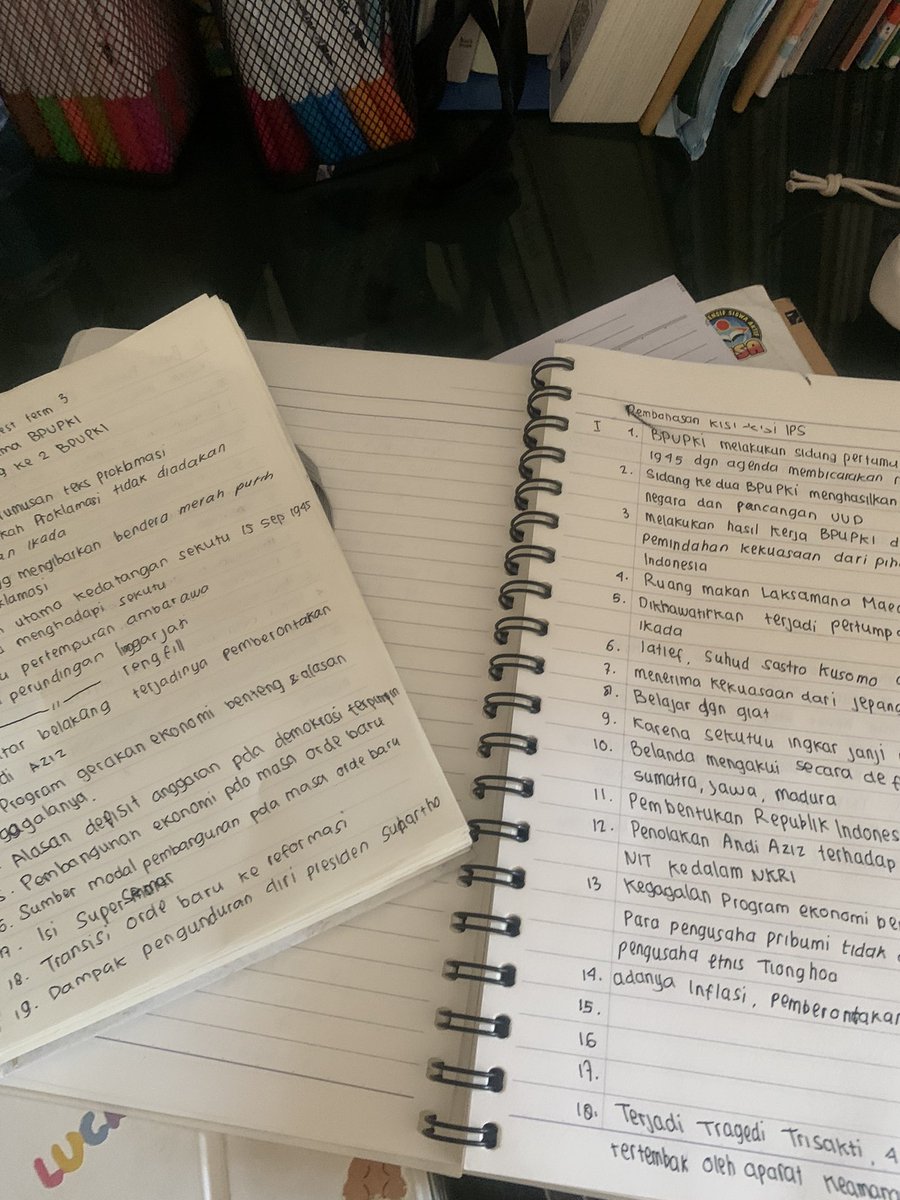 term 3
BPUPKI
ke 2 BPUPKI
teks Proklamasi
Proklamasi tidak diadakan
Ikada
mengibarkan bendera merah putih
utama kedatangan sekutu 15 Sep 1945
menghadapi sekutu
pertempuran ambarawa
perundingan linggarjati
— 11 — rengfill
belakang terjadinya pemberontakan
Aziz
Program gerakan ekonomi benteng & alasan
gagalanya.
Alasan defisit anggaran pada demokrasi terpimpin
Pembangunan ekonomi pda masa orde baru
Sumber modal pembangunan pada masa orde baru
Isi Supersemar
18. Transisi orde baru ke reformasi
19. Dampak pengunduran diri presiden Suharto
Pembahasan kisi-kisi IPS
I 1. BPUPKI melakukan sidang pertama
1945 dgn agenda membicarakan
2. Sidang ke dua BPUPKI menghasilkan
negara dan pancangan UUD
3 melakukan hasil kerja BPUPKI
Pemindahan kekuasaan dari
Indonesia
4. Ruang makan Laksamana
5. Dikhawatirkan terjadi
Ikada
6. latief, Suhud Sastro Kusomo
7. menerima kekuasaan dari jepang
8. Belajar dgn giat
9. Karena sekutuu ingkar janji
10. Belanda mengakui secara de
sumatra, jawa, madura
11. Pembentukan Republik
12. Penolakan Andi Aziz terhadap
NIT kedalam NKRI
13 Kegagalan Program ekonomi
Para pengusaha pribumi tidak
pengusaha etnis Tionghoa
14. adanya Inflasi, Pemberontakan
15.
16
17.
18. Terjadi Tragedi Trisakti, 4
tertembak oleh aparat
LUC